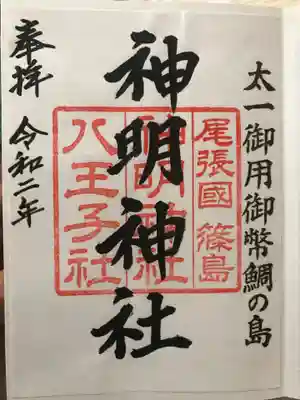 太一御用御幣鯛の島
神明神社
尾張國篠島
神明神社
八王子社
奉拝
令和二年